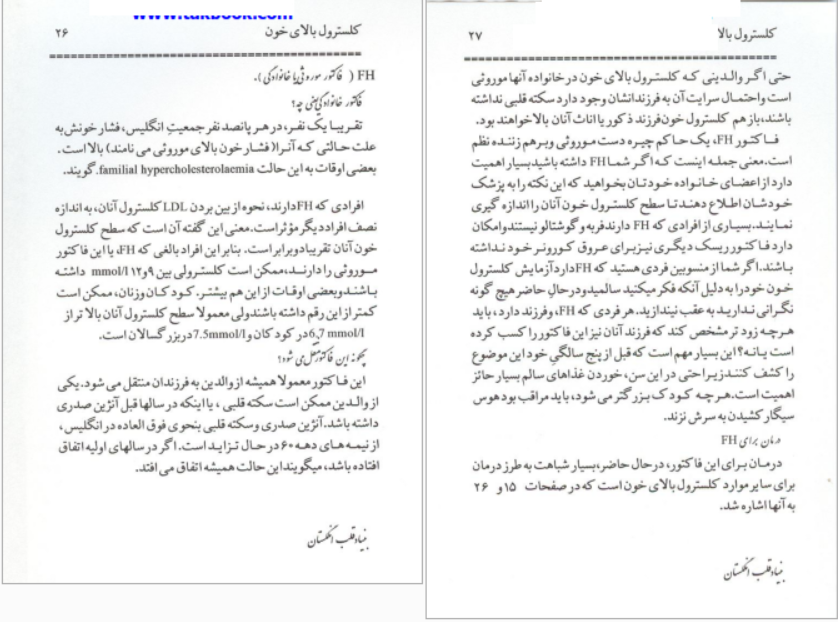 www.takbook.com
کلسترول بالای خون ۲۶
FH ( فاکتور موروثی یا خانوادگی ).
فاکتور خانوادگی یعنی چه؟
تقریبا یک نفر، در هر پانصد نفر جمعیت انگلیس، فشار خونش به
علت حالتی که آنرا( فشار خون بالای موروثی می نامند) بالا است.
بعضی اوقات به این حالت familial hypercholesterolaemia. گویند.
افرادی که FHدارند، نحوه از بین بردن LDL کلسترول آنان، به اندازه
نصف افراد دیگر مؤثر است. معنی این گفته آن است که سطح کلسترول
خون آنان تقریبا دو برابر است. بنابر این افراد بالغی که FH، یا این فاکتور
مـوروثی را دارنـد، ممکن است کلسترولی بین ۹ و ۱۲ mmol/l داشته
باشند و بعضی اوقات از این هم بیشتر. کودکان و زنان، ممکن است
کمتر از این رقم داشته باشند ولی معمولا سطح کلسترول آنان بالا تر از
6,7 mmol/l در کودکان و 7.5mmol/l در بزرگسالان است.
چگونه این فاکتور منتقل می شود؟
این فـاکتور معمولا همیشه از والدین به فرزندان منتقل می شود. یکی
از والـدین ممکن است سکته قلبی ، یا اینکه در سالها قبل آنژین صدری
داشته باشد. آنژین صدری و سکته قلبی بنحوی فوق العاده در انگلیس،
از نیمه هـای دهـه ۶۰ در حال تـزایـد است. اگر در سالهای اولیه اتفاق
افتاده باشد، میگویند این حالت همیشه اتفاق می افتد.
بنیاد قلب انگلستان
کلسترول بالا ۲۷
حتی اگـر والـدینی کـه کلسترول بالای خون در خانواده آنها موروثی
است و احتمـال سرایت آن به فرزندانشان وجود دارد سکته قلبی نداشته
باشند، باز هم کلسترول خون فرزند ذکور یا اناث آنان بالا خواهند بود.
فـاکتـور FH، یک حـاکم چیره دست مـوروثی و برهم زننـده نظم
است. معنی جملـه اینست کـه اگر شمـا FH داشته باشید بسیار اهمیت
دارد از اعضای خـانـواده خودتـان بخواهید که این نکته را به پزشک
خـودشـان اطـلاع دهنـد تـا سطح کلستـرول خـون آنان را اندازه گیری
نمـاینـد. بسیـاری از افرادی که FH دارند فربه و گوشتالو نیستند و امکان
دارد فـاکتـور ریسک دیگـری نیـز بـرای عـروق کـورونـر خـود نـداشته
بـاشند. اگر شما از منسوبین فردی هستید که FH دارد آزمایش کلسترول
خـون خود را به دلیل آنکه فکر میکنید سالمید و در حال حاضر هیچ گونه
نگرانی نـداریـد به عقب نیندازید. هر فردی که FH، و فرزند دارد ، باید
هـرچـه زود تر مشخص کند که فرزند آنان نیز این فاکتور را کسب کرده
است یـا نـه؟ این بسیار مهم است که قبل از پنج سالگی خود این موضوع
را کشف کننـد زیـرا حتی در این سن، خوردن غذاهای سالم بسیار حائز
اهمیت است. هـر چـه کـودک بـزرگتر می شود، باید مراقب بود هوس
سیگار کشیدن به سرش نزند.
درمان برای FH
درمـان بـرای این فاکتور، در حال حاضر، بسیار شباهت به طرز درمان
برای سایر موارد کلسترول بالای خون است که در صفحات ۱۵ و ۲۶
به آنها اشاره شد.
بنیاد قلب انگلستان